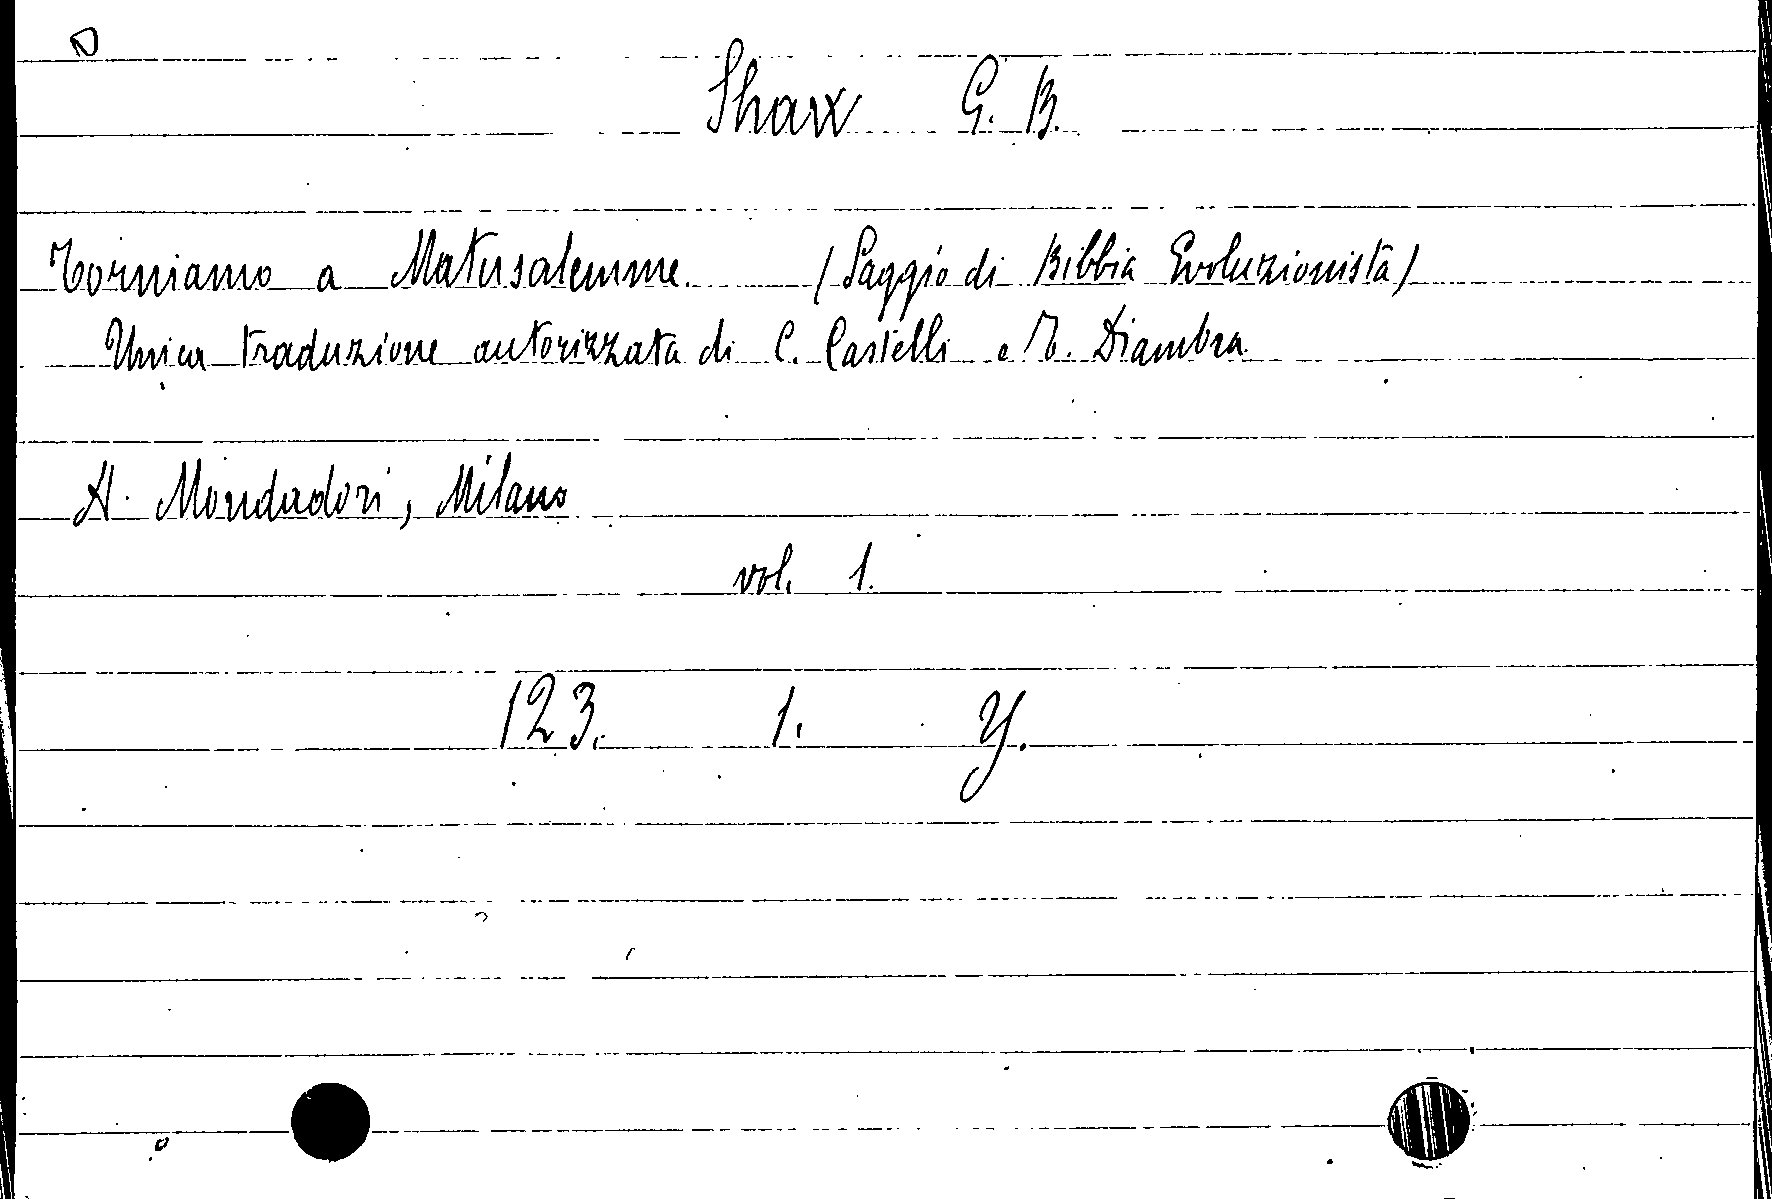 Shaw G. B.
Torniamo a Matusalemme. (Saggio di Bibbia Evoluzionista)
Unica traduzione autorizzata di C. Castelli e T. Diambra.
A. Mondadori, Milano
vol. 1.
123. 1. Y.